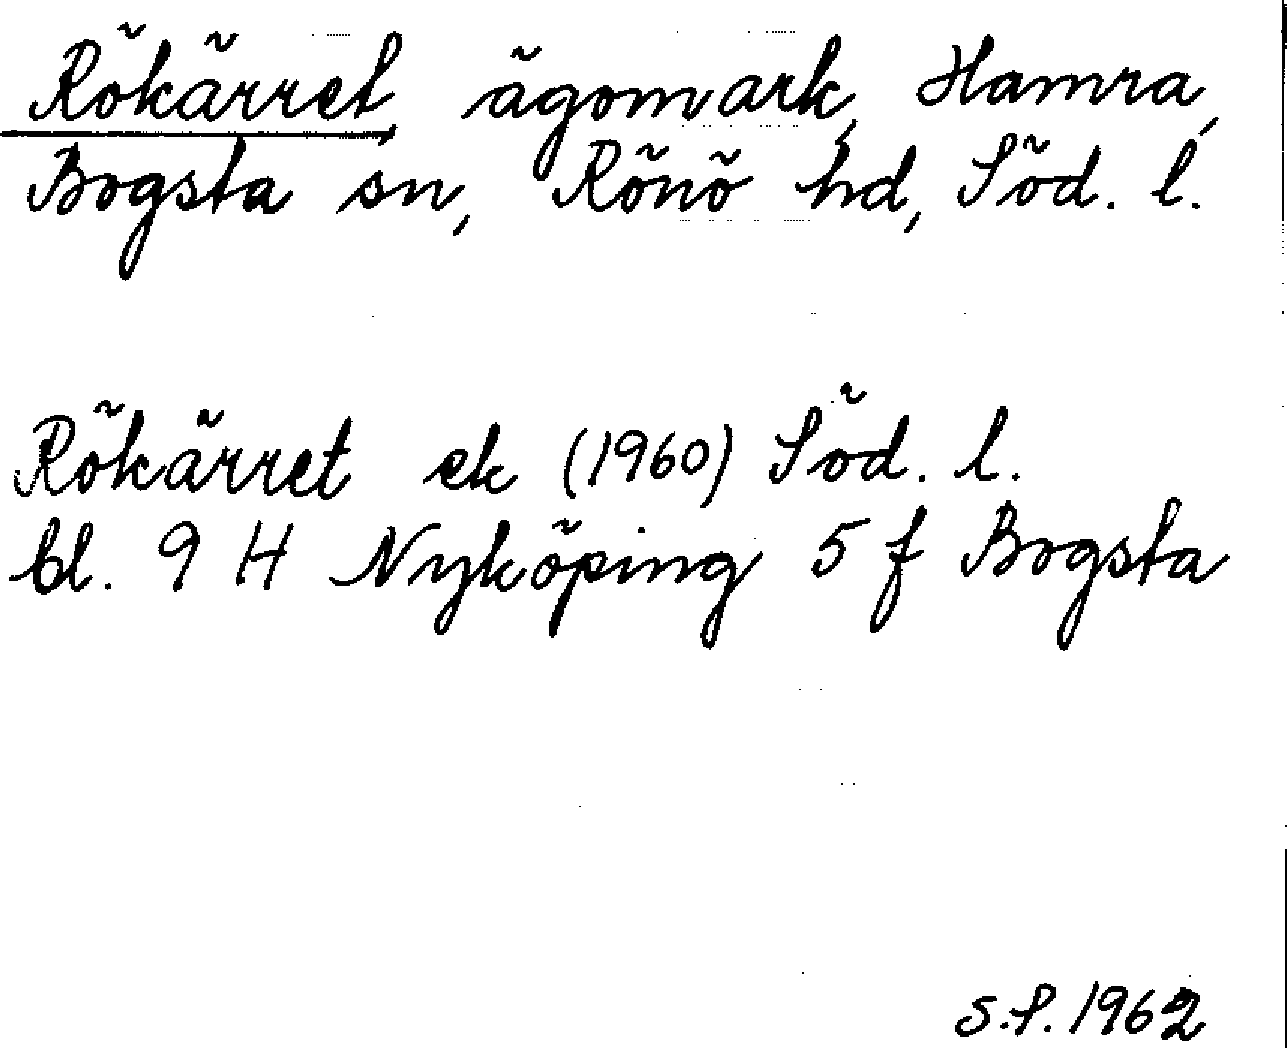 Rökärret, ägomark, Hamra,
Bogsta sn, Rönö hd, Söd. l.
Rökärret ek (1960) Söd. l.
bl. 9 H Nyköping 5 f Bogsta
S.P. 1962